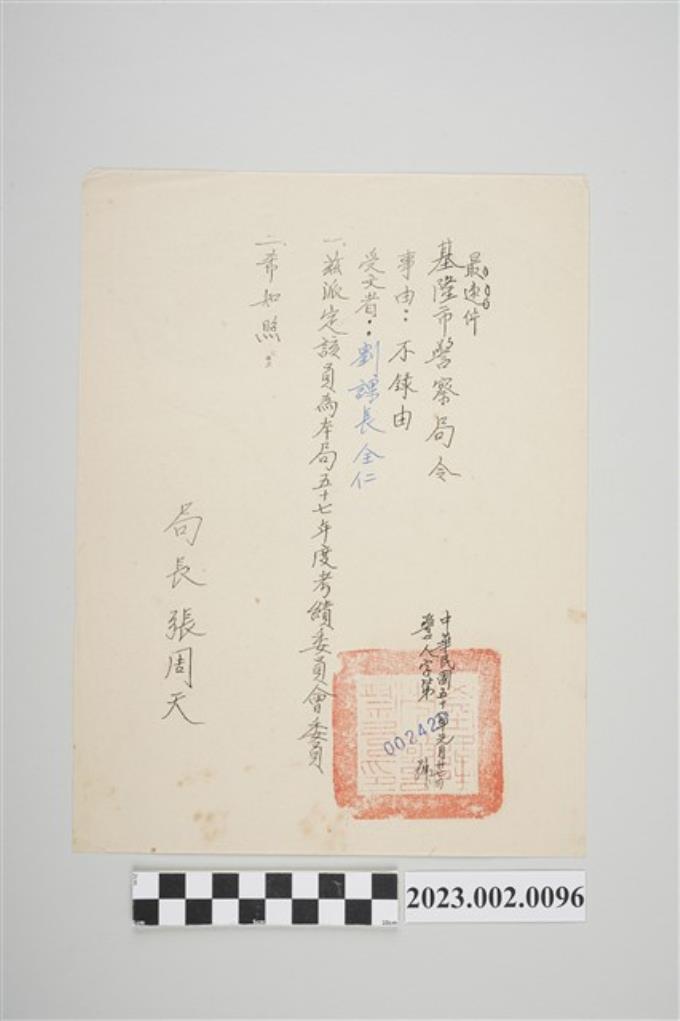 最速件
基隆市警察局令
中華民國五十
警人字第
00242
號
事由：不錄由
受文者：劉課長全仁
一、茲派定該員為本局五十七年度考績委員會委員
二、希知照。
局長 張周天
2023.002.0096